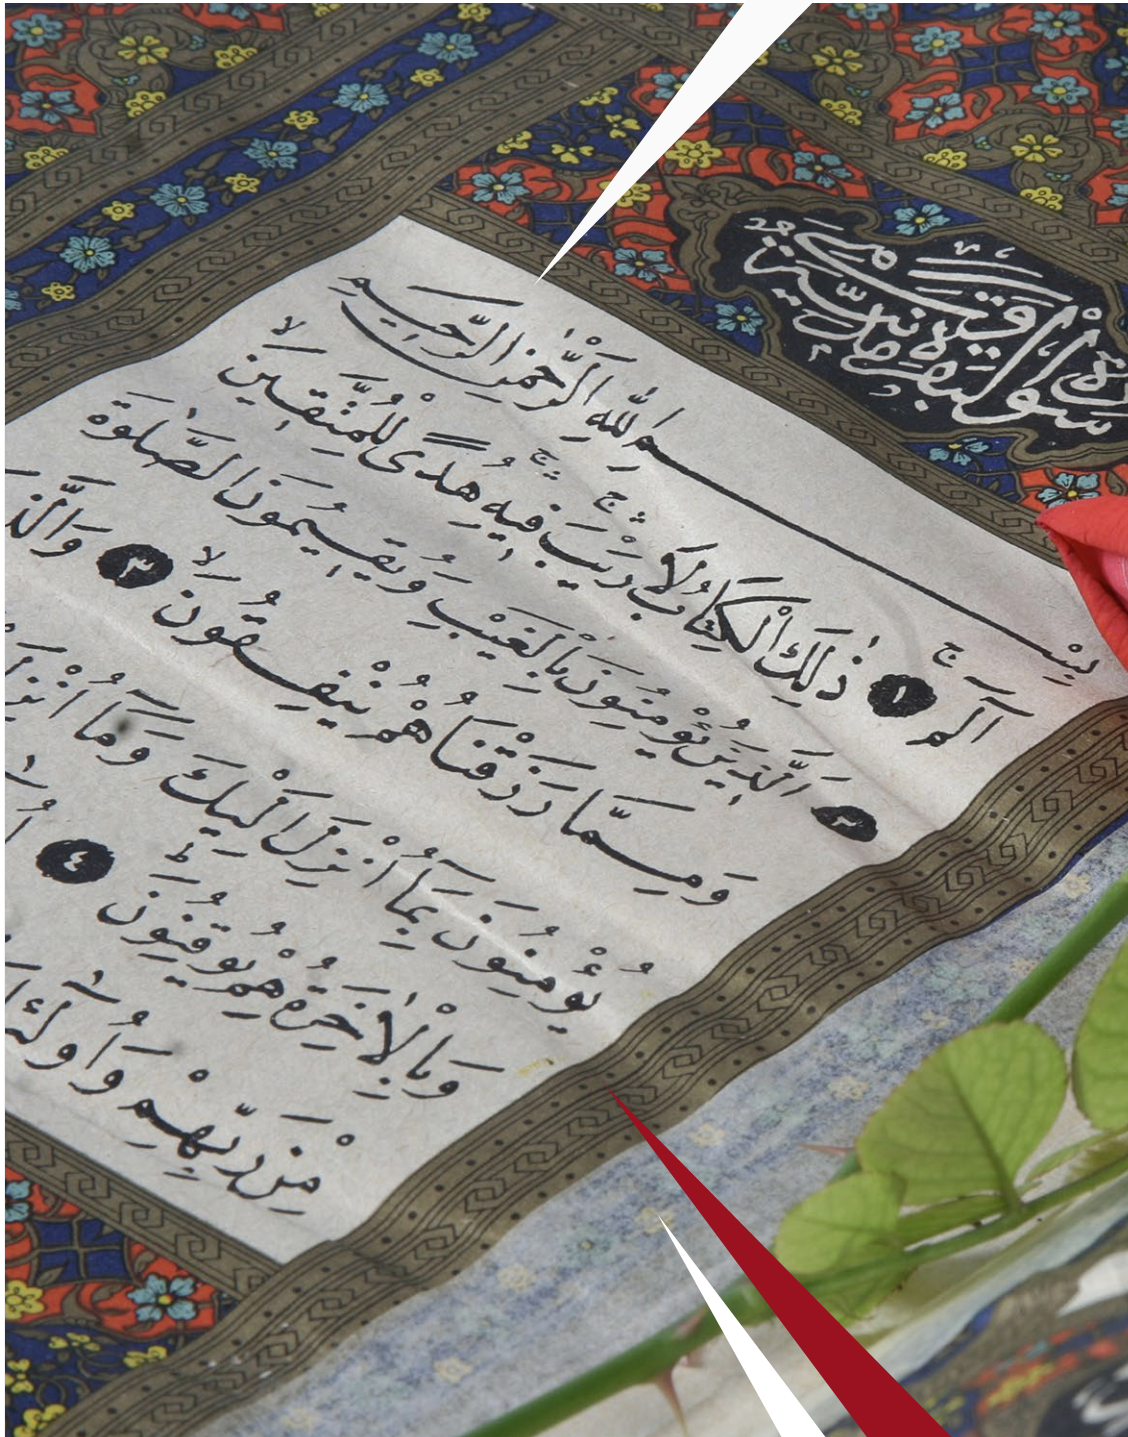 سورة البقرة
بِسْمِ اللّٰهِ الرَّحْمٰنِ الرَّحِيمِ
الٓمٓ ۚ ١ ذٰلِكَ الْكِتَابُ لَا رَيْبَ ۚۛ فِيهِ ۚۛ هُدًى لِلْمُتَّقِينَ ۙ
٢ اَلَّذِينَ يُؤْمِنُونَ بِالْغَيْبِ وَيُقِيمُونَ الصَّلٰوةَ
وَمِمَّا رَزَقْنَاهُمْ يُنْفِقُونَ ۙ ٣ وَالَّذ
يُؤْمِنُونَ بِمَٓا اُنْزِلَ اِلَيْكَ وَمَٓا اُنْزِلَ
وَبِالْاٰخِرَةِ هُمْ يُوقِنُونَ ؕ ٤
مِنْ رَبِّهِمْ وَاُولٰٓئِكَ